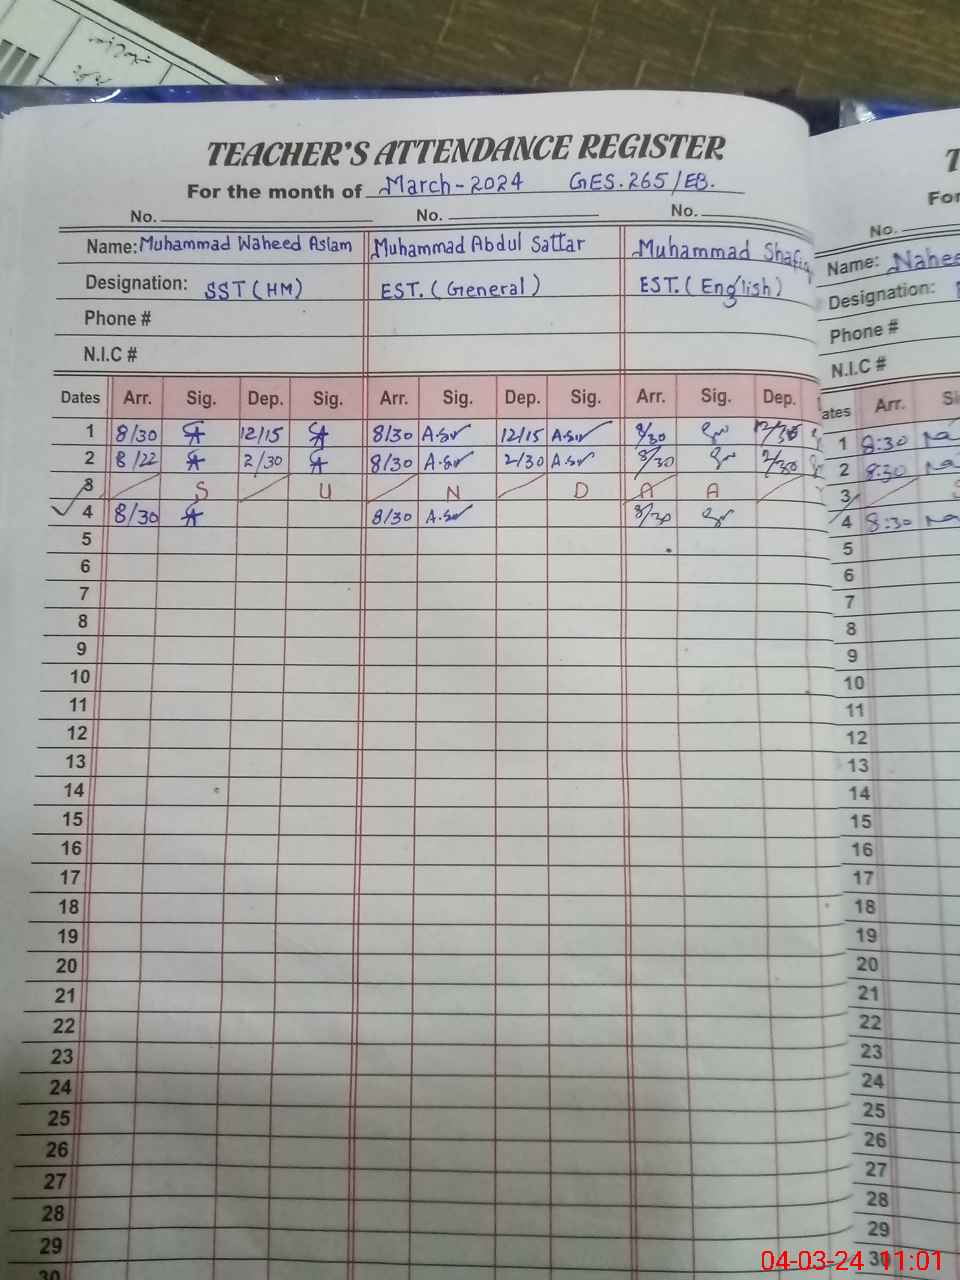 TEACHER'S ATTENDANCE REGISTER
For the month of March-2024 GES.265/EB.
No. No. No.
Name: Muhammad Waheed Aslam Muhammad Abdul Sattar Muhammad Shafiq
Designation: SST (HM) EST. (General) EST. (English)
Phone #
N.I.C #
Dates Arr. Sig. Dep. Sig. Arr. Sig. Dep. Sig. Arr. Sig. Dep.
1 8/30 12/15 8/30 A.Sr 12/15 A.Sr 8/30
2 8/22 2/30 8/30 A.Sr 2/30 A.Sr 8/30 2/30
3 S U N D A A
4 8/30 8/30 A.Sr 8/30
5
6
7
8
9
10
11
12
13
14
15
16
17
18
19
20
21
22
23
24
25
26
27
28
29
30
T
For
No.
Name: Nahee
Designation:
Phone #
N.I.C #
ates Arr. Si
1 8:30 Na
2 8:30 Na
3
4 8:30 Na
5
6
7
8
9
10
11
12
13
14
15
16
17
18
19
20
21
22
23
24
25
26
27
28
29
30
04-03-24 11:01